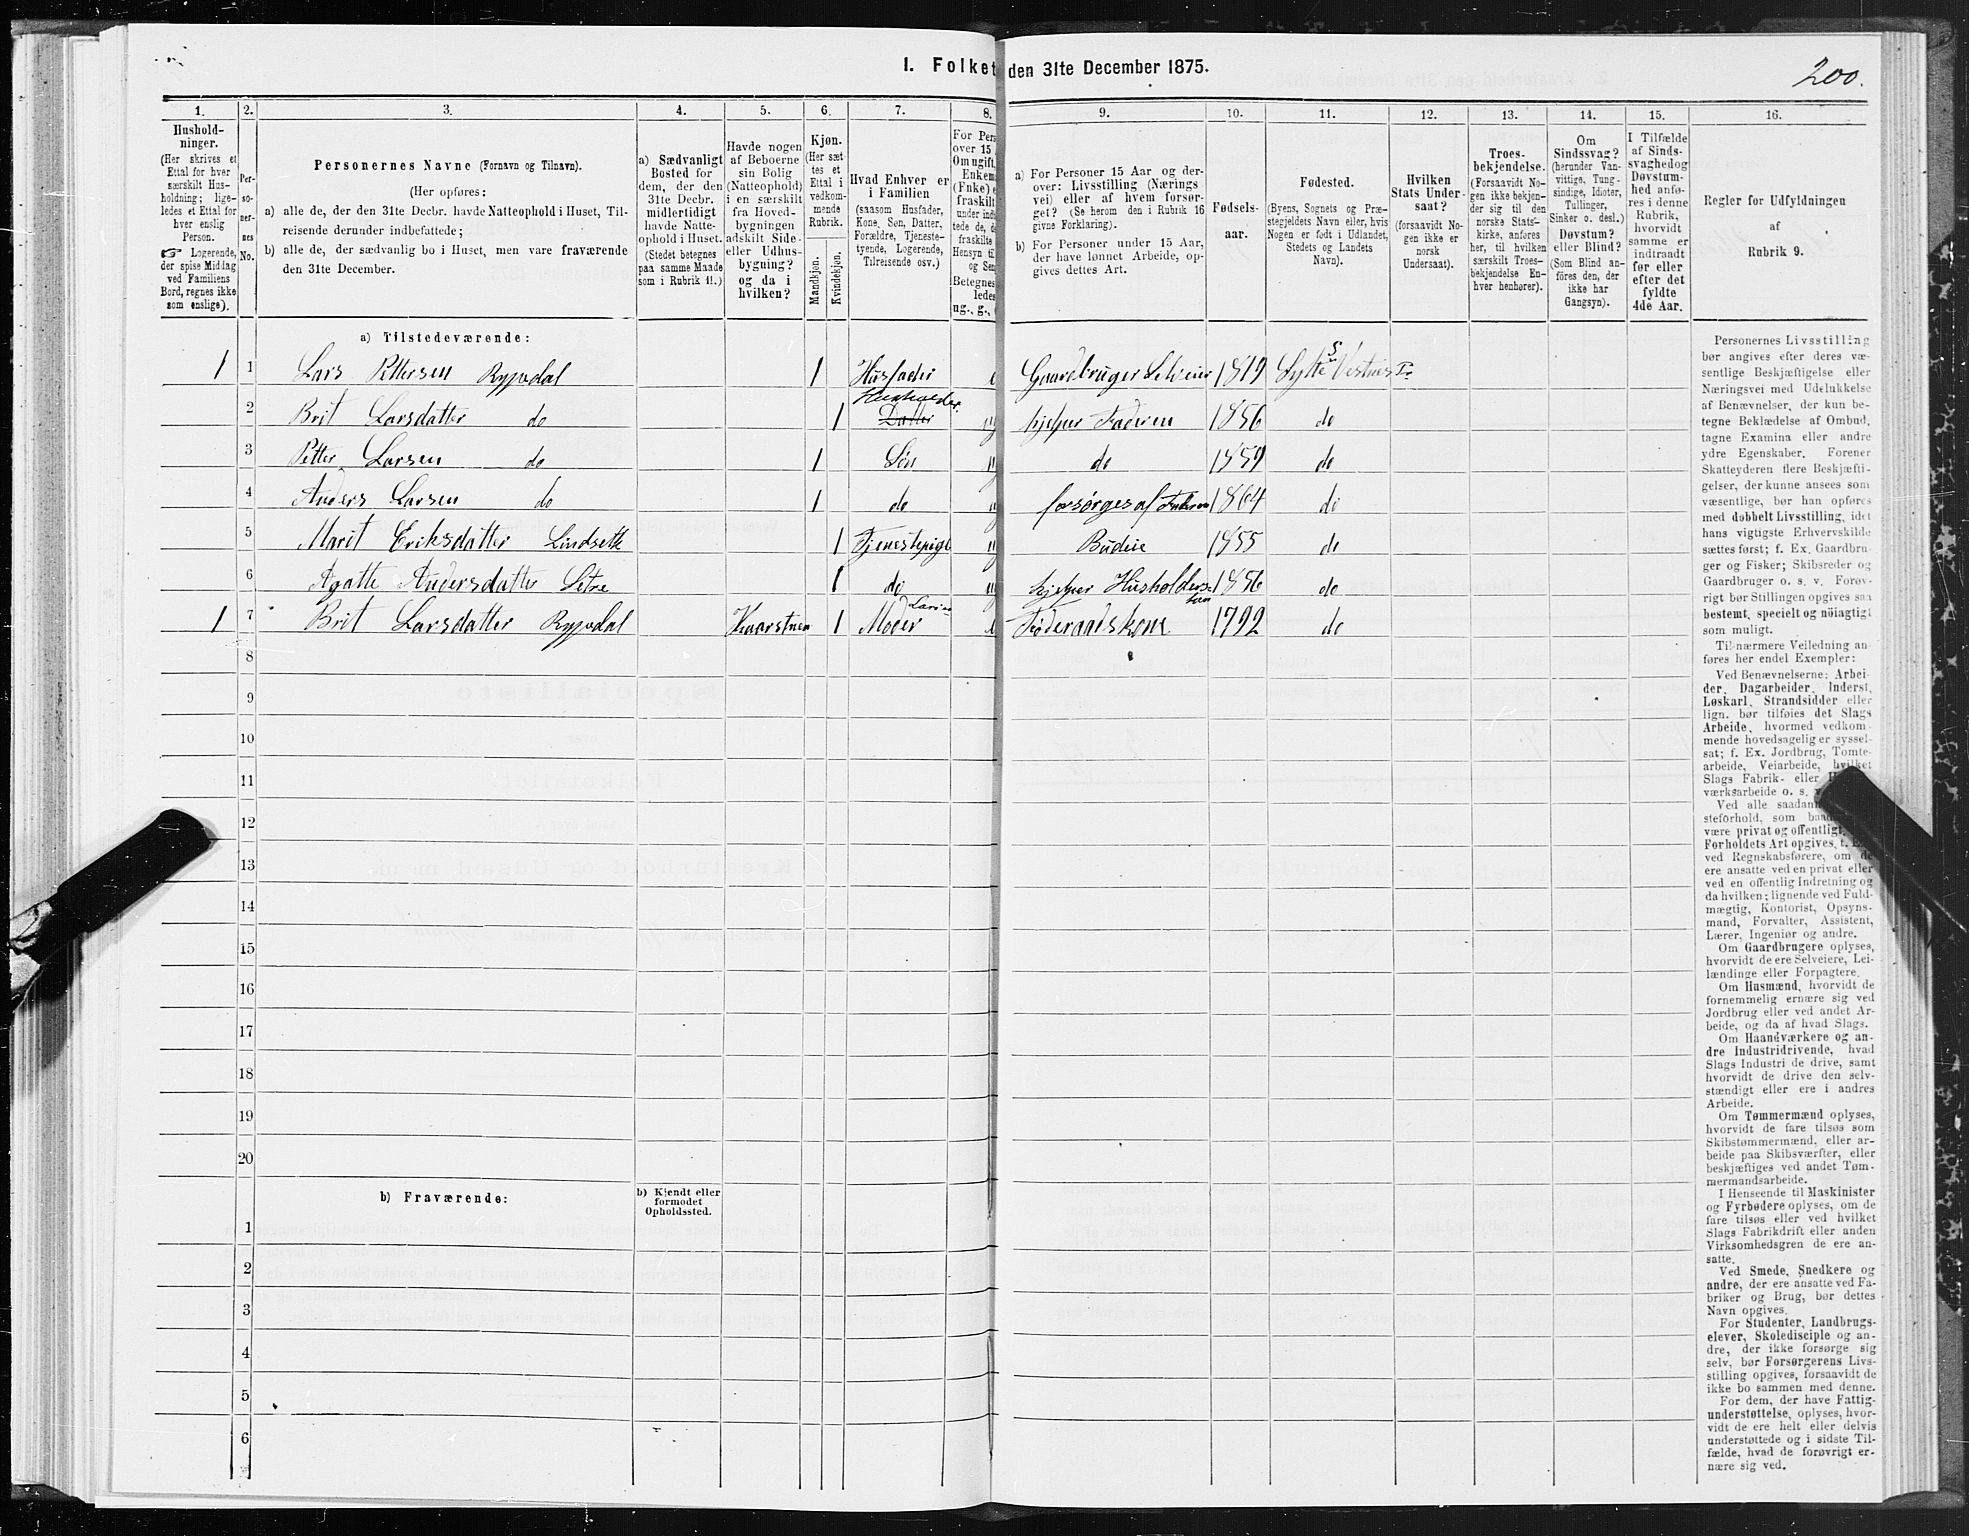 1. Folket den 31te December 1875.
200.
1. 2. 3. 4. 5. 6. 7. 8. 9. 10. 11. 12. 13. 14. 15. 16.
Hushold-
ninger.
(Her skrives et
Ettal for hver
særskilt Hus-
holdning; lige-
ledes et Ettal for
hver enslig
Person.
☞ Logerende,
der spise Middag
ved Familiens
Bord, regnes ikke
som enslige).
Per-
so-
ner-
nes
No.
Personernes Navne (Fornavn og Tilnavn).
(Her opføres:
a) alle de, der den 31te Decbr. havde Natteophold i Huset, Til-
reisende derunder indbefattede;
b) alle de, der sædvanlig bo i Huset, men vare fraværende
den 31te December.
a) Sædvanligt
Bosted for
dem, der den
31te Decbr.
midlertidigt
havde Natte-
ophold i Huset.
(Stedet betegnes
paa samme Maade
som i Rubrik 11.)
Havde nogen
af Beboerne
sin Bolig
(Natteophold)
i en særskilt
fra Hoved-
bygningen
adskilt Side-
eller Udhus-
bygning?
og da i
hvilken?
Kjøn.
(Her sæt-
tes et
Ettal i
vedkom-
mende
Rubrik.
Mandkjøn.
Kvindekjøn.
Hvad Enhver er
i Familien
(saasom Husfader,
Kone, Søn, Datter,
Forældre, Tjeneste-
tyende, Logerende,
Tilreisende osv.)
For Pers
over 15
Om ugift,
Enkem
(Fnke) e
fraskilt
under indt
tede de, d
fraskilte
Hensyn ti
og Sen
Betegnes
ledes
ug., g.,
a) For Personer 15 Aar og der-
over: Livsstilling (Nærings
vei) eller af hvem forsør-
get? (Se herom den i Rubrik 16
givne Forklaring).
b) For Personer under 15 Aar,
der have lønnet Arbeide, op-
gives dettes Art.
Fødsels-
aar.
Fødested.
(Byens, Sognets og Præ-
stegjeldets Navn eller, hvis
Nogen er født i Udlandet,
Stedets og Landets
Navn).
Hvilken
Stats Under-
saat?
(forsaavidt No-
gen ikke er
norsk
Undersaat).
Troes-
bekjendelse.
(Forsaavidt No-
gen ikke bekjen-
der sig til den
norske Stats-
kirke, anføres
her, til hvilken
særskilt Troes-
bekjendelse En-
hver henhører).
Om
Sindssvag?
(herunder Van-
vittige, Tung-
sindige, Idioter,
Tullinger,
Sinker o. desl.)
Døvstum?
eller Blind?
(Som Blind an-
føres den, der
ikke har
Gangsyn).
I Tilfælde
af Sinds-
svaghed og
Døvstum-
hed anfø-
res i denne
Rubrik,
hvorvidt
samme er
indtraadt
før eller
efter det
fyldte
4de Aar.
Regler for Udfyldningen
af
Rubrik 9.
a) Tilstedeværende:
1 1 Lars Pettersen Rypdal 1 Husfader Gaardbruger Selveier 1819 Sylte S Vestnes Pr
Husholder.
2 Brit Larsdatter do 1 Datter hjelper Faderen 1856 do
3 Petter Larsen do 1 Søn do 1859 do
4 Anders Larsen do 1 do forsørges af Faderen 1864 do
5 Marit Eriksdatter Lindsette 1 Tjenestepige Budeie 1855 do
6 Agatte Andersdatter Setre 1 do hjelper Husholdersken 1856 do
1 7 Brit Larsdatter Rypdal Kaarstuen 1 Moder Føderaadskone 1792 do
8
9
10
11
12
13
14
15
16
17
18
19
20
b) Fraværende:
b) Kjendt eller
formodet
Opholdssted.
1
2
3
4
5
6
Personernes Livsstilling
bør angives efter deres væ-
sentlige Beskjæftigelse eller
Næringsvei med Udelukkelse
af Benævnelser, der kun be-
tegne Beklædelse af Ombud,
tagne Examina eller andre
ydre Egenskaber. Forener
Skatteyderen flere Beskjæfti-
gelser, der kunne ansees som
væsentlige, bør han opføres
med dobbelt Livsstilling, idet
hans vigtigste Erhvervskilde
sættes først; f. Ex. Gaardbru-
ger og Fisker; Skibsreder og
Gaardbruger o. s. v. Forøv-
rigt bør Stillingen opgives saa
bestemt, specielt og nöiagtigt
som muligt.
Til nærmere Veiledning an-
føres her endel Exempler:
Ved Benævnelserne: Arbei-
der, Dagarbeider, Inderst,
Løskarl, Strandsidder eller
lign. bør tilføies det Slags
Arbeide, hvormed vedkom-
mende hovedsagelig er syssel-
sat; f. Ex. Jordbrug, Tomte-
arbeide, Veiarbeide, hvilket
Slags Fabrik- eller H
værksarbeide o. s. v
Ved alle saadan
steforhold, som baa
være privat og offentligt,
Forholdets Art opgives, f. E
ved Regnskabsførere, om de
ere ansatte ved en privat eller
ved en offentlig Indretning og
da hvilken; lignende ved Fuld-
mægtig, Kontorist, Opsyns-
mand, Forvalter, Assistent,
Lærer, Ingeniør og andre.
Om Gaardbrugere oplyses,
hvorvidt de ere Selveiere, Lei-
lændinge eller Forpagtere.
Om Husmænd, hvorvidt de
fornemmelig ernære sig ved
Jordbrug eller ved andet Ar-
beide, og da af hvad Slags.
Om Haandværkere og an-
dre Industridrivende, hvad
Slags Industri de drive, samt
hvorvidt de drive den selv-
stændigt eller ere i andres
Arbeide.
Om Tømmermænd oplyses,
hvorvidt de fare tilsøs som
Skibstømmermænd, eller ar-
beide paa Skibsværfter, eller
beskjæftiges ved andet Tøm-
mermandsarbeide.
I Henseende til Maskinister
og Fyrbødere oplyses, om de
fare tilsøs eller ved hvilket
Slags Fabrikdrift eller anden
Virksomhedsgren de ere an-
satte.
Ved Smede, Snedkere og
andre, der ere ansatte ved Fa-
briker og Brug, bør dettes
Navn opgives.
For Studenter, Landbrugs-
elever, Skoledisciple og an-
dre, der ikke forsørge sig
selv, bør Forsørgerens Livs-
stilling opgives, forsaavidt de
ikke bo sammen med denne.
For dem, der have Fattig-
understøttelse, oplyses, hvor-
vidt de ere helt eller delvis
understøttede og i sidste Til-
fælde, hvad de forøvrigt er-
nære sig ved.